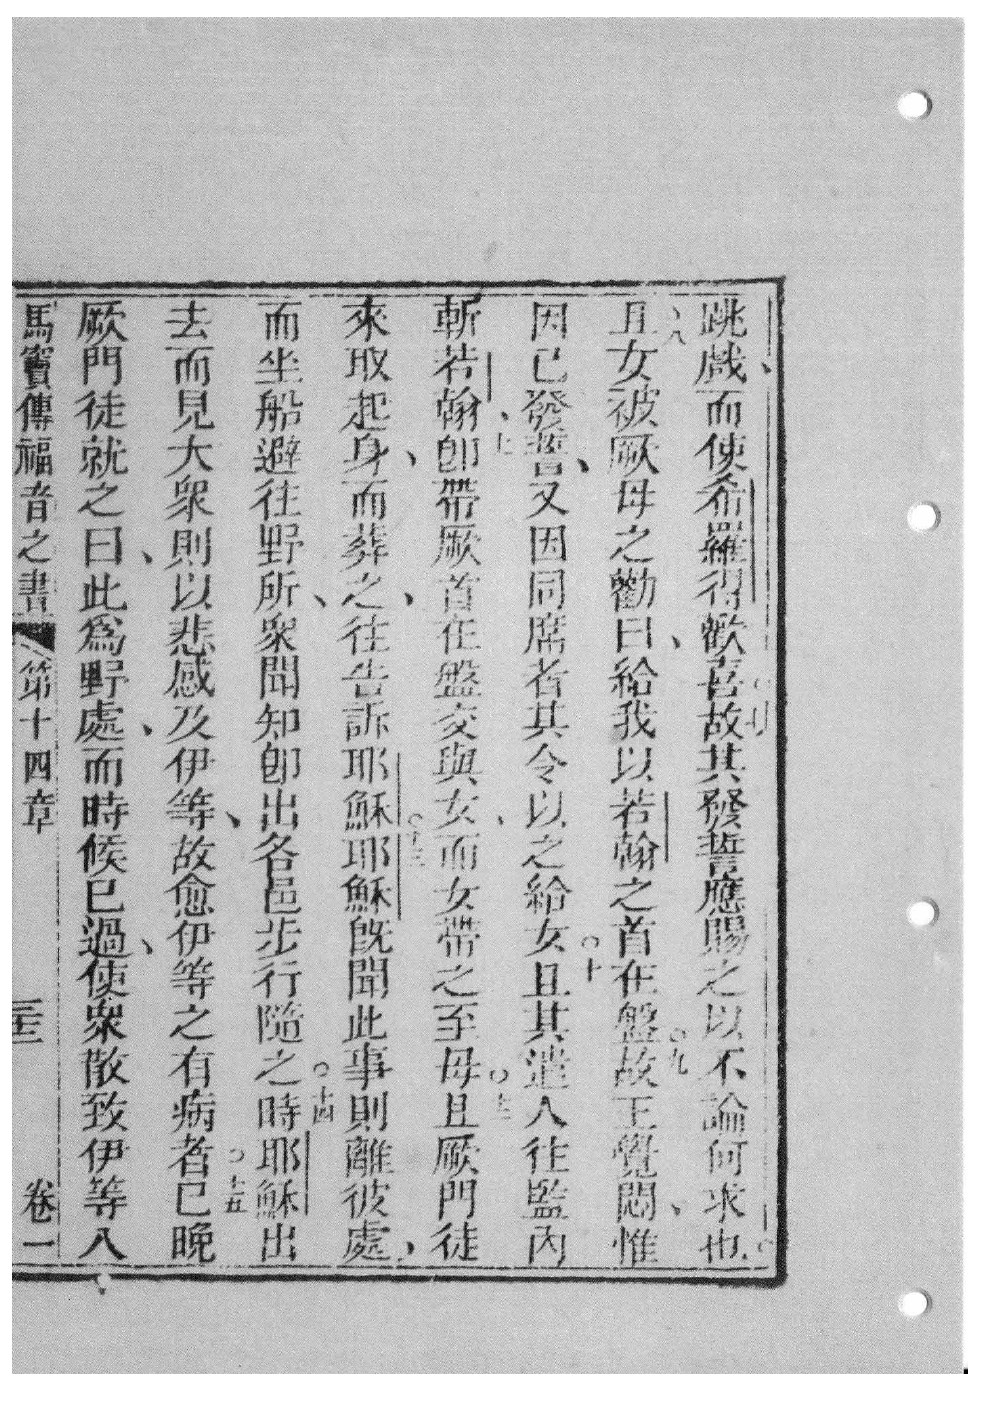 跳戲、而使希羅得歡喜○七故其發誓應賜之以不論何求也○
八且女被厥母之勸曰、給我以若翰之首在盤○九故王覺悶、惟
因已發誓、又因同席者其令以之給女○十且其遣人往監內
斬若翰、十一卽帶厥首在盤交與女、而女帶之至母○十二且厥門徒
來取起身、而葬之、往告訴耶穌○十三耶穌旣聞此事則離彼處、
而坐船避往野所、衆聞知卽出各邑步行隨之○十四時耶穌出
去而見大衆則以悲感及伊等、故愈伊等之有病者○十五已晚
厥門徒就之曰、此爲野處、而時候已過、使衆散致伊等入
馬竇傳福音之書 第十四章 卷一